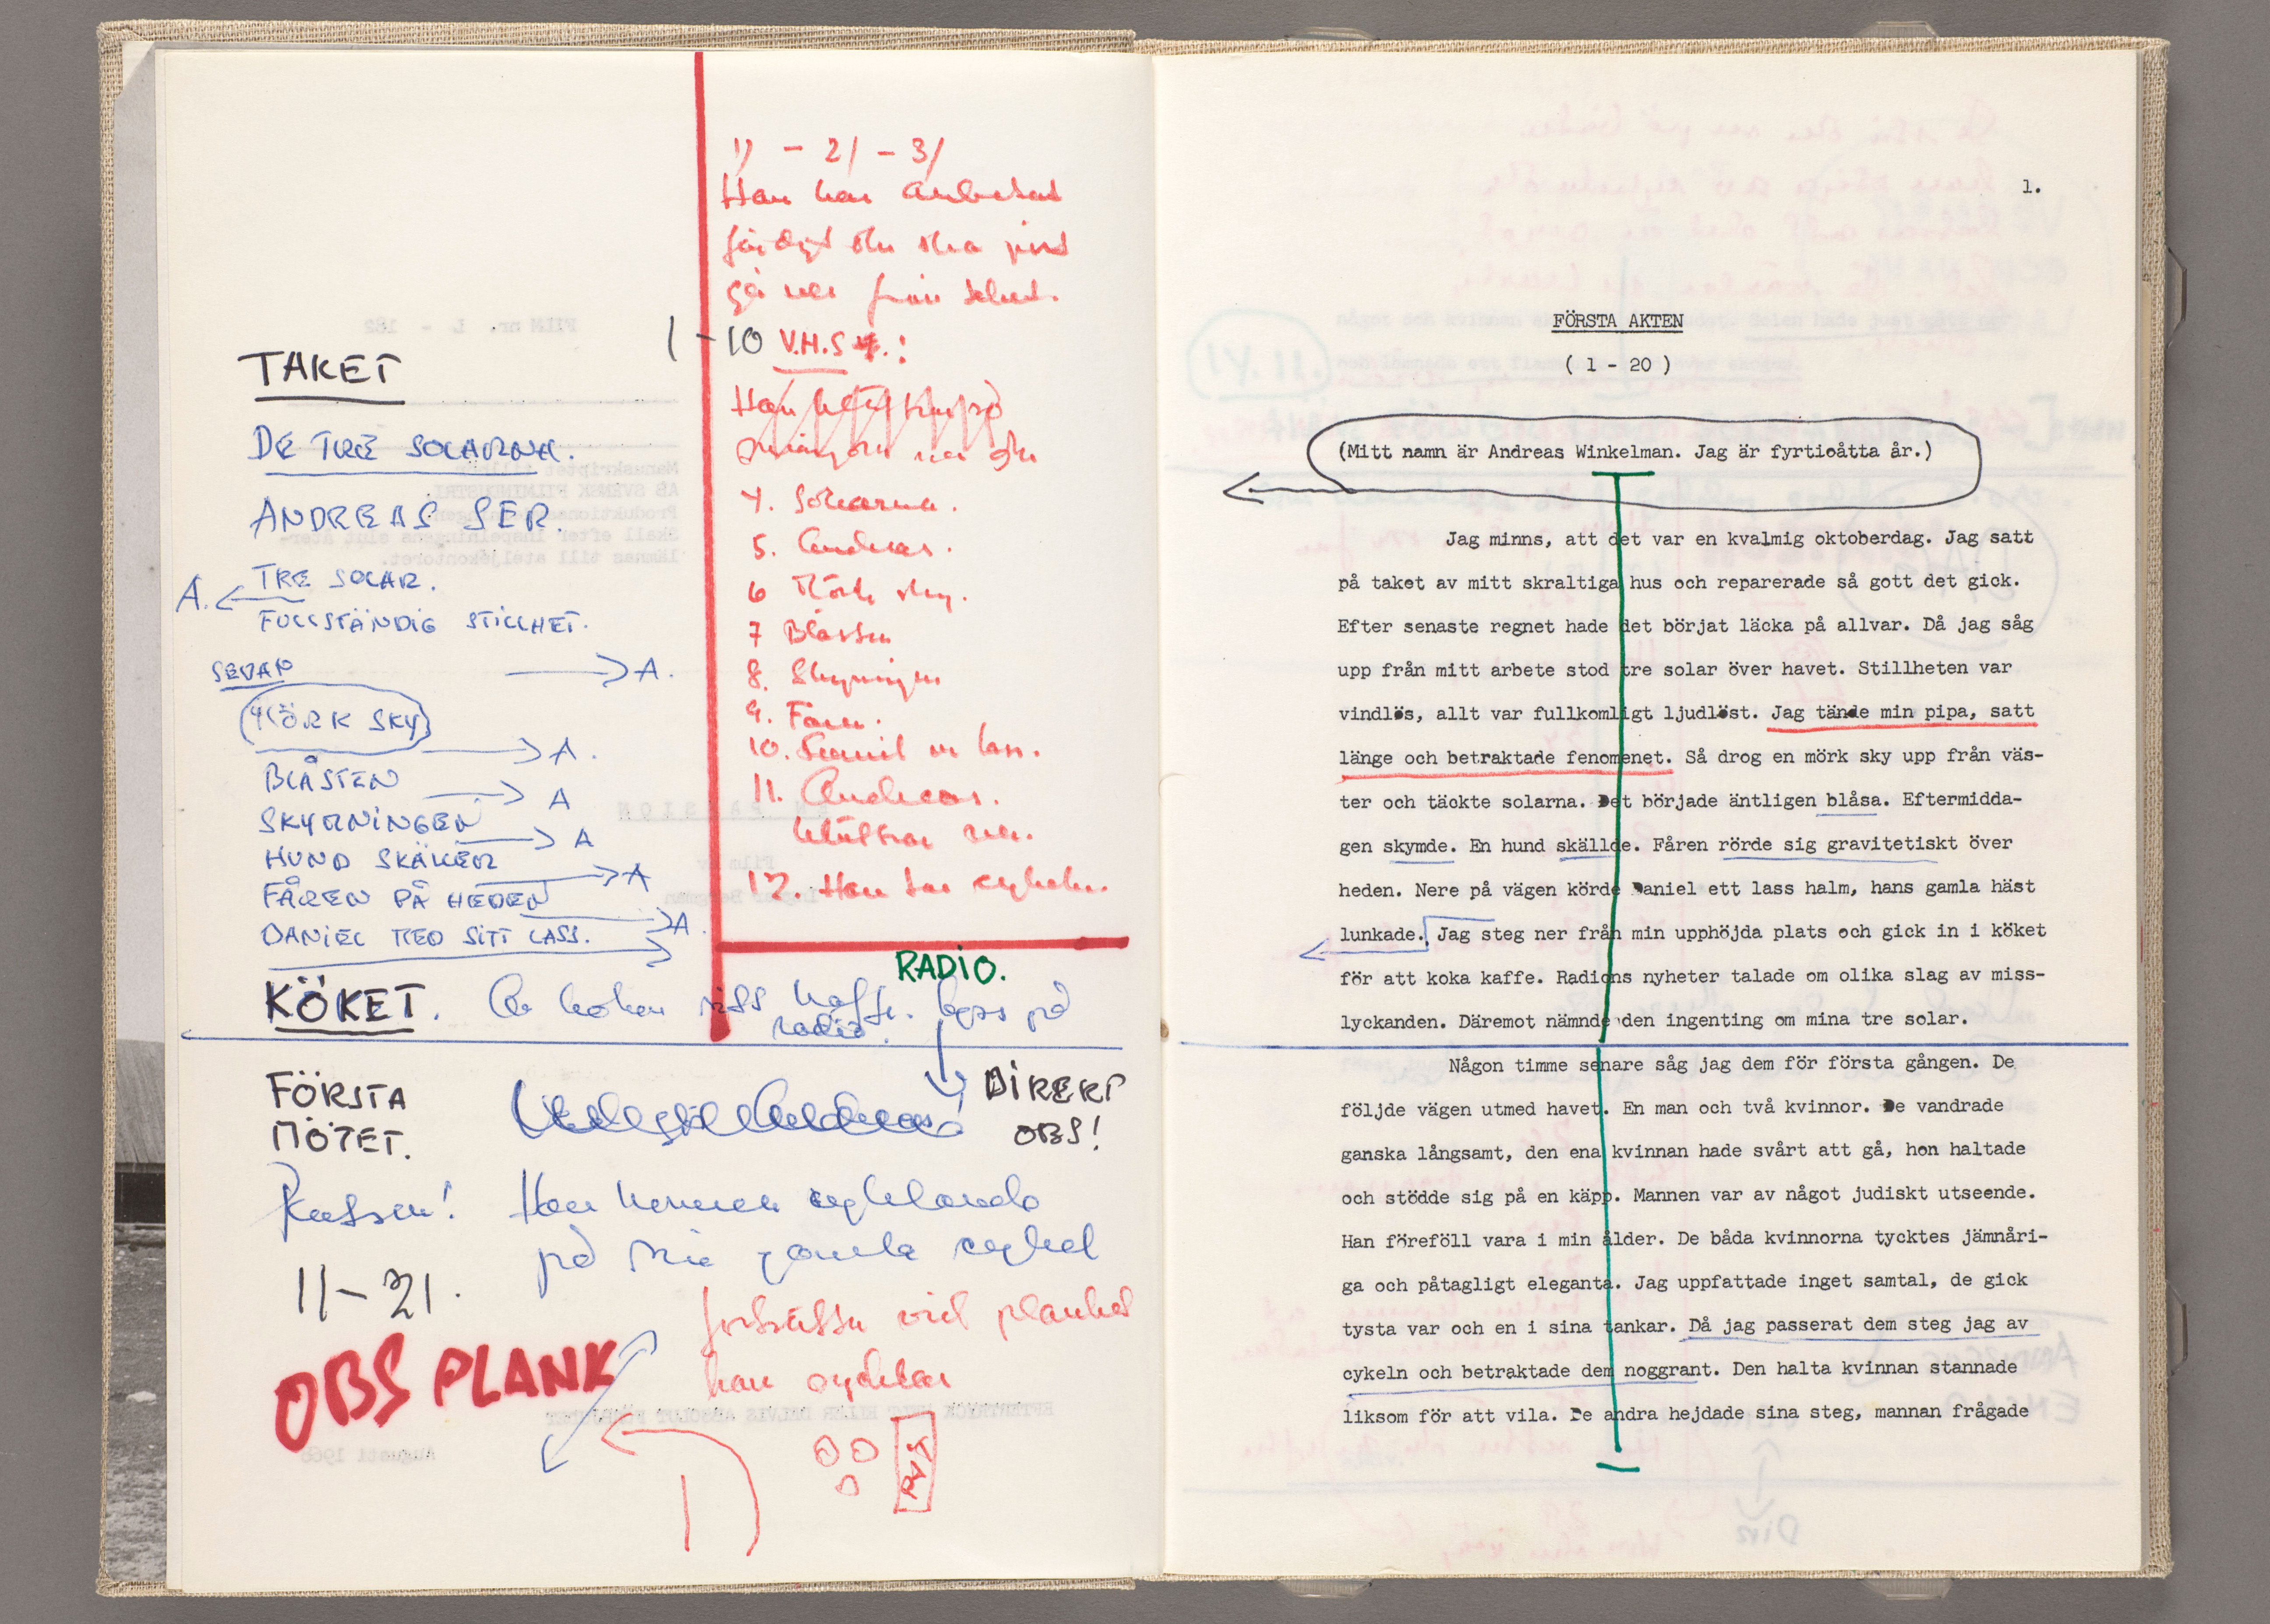 TAKET
DE TRE SOLARNA.
ANDREAS SER.
TRE SOLAR.
A.
FULLSTÄNDIG STILLHET.
SEDAN
A.
MÖRK SKY
A.
BLÅSTEN
A
SKYMNINGEN
A
HUND SKÄLLER
A
FÅREN PÅ HEDEN
A.
DANIEL MED SITT LASS.
1/ - 2/ - 3/
Han har arbetat
färdigt och ska just
gå ner från taket.
1-10 V.H.S.:
4. Solarna.
5. Andreas.
6 Mörk sky.
7 Blåsten
8. Skymningen
9. Fåren.
10. Daniel m lass.
11. Andreas.
klättrar ner.
12. Han tar cykeln.
RADIO.
KÖKET. kokar kaffe. på
radio.
FÖRSTA
MÖTET.
DIREKT
OBS!
Han kommer cyklande
på sin gamla cykel
11-21.
fortsätta vid planket
han cyklar
OBS PLANK
1.
FÖRSTA AKTEN
( 1 - 20 )
(Mitt namn är Andreas Winkelman. Jag är fyrtioåtta år.)
Jag minns, att det var en kvalmig oktoberdag. Jag satt
på taket av mitt skraltiga hus och reparerade så gott det gick.
Efter senaste regnet hade det börjat läcka på allvar. Då jag såg
upp från mitt arbete stod tre solar över havet. Stillheten var
vindlös, allt var fullkomligt ljudlöst. Jag tände min pipa, satt
länge och betraktade fenomenet. Så drog en mörk sky upp från väs-
ter och täckte solarna. Det började äntligen blåsa. Eftermidda-
gen skymde. En hund skällde. Fåren rörde sig gravitetiskt över
heden. Nere på vägen körde Daniel ett lass halm, hans gamla häst
lunkade. Jag steg ner från min upphöjda plats och gick in i köket
för att koka kaffe. Radions nyheter talade om olika slag av miss-
lyckanden. Däremot nämnde den ingenting om mina tre solar.
Någon timme senare såg jag dem för första gången. De
följde vägen utmed havet. En man och två kvinnor. De vandrade
ganska långsamt, den ena kvinnan hade svårt att gå, hon haltade
och stödde sig på en käpp. Mannen var av något judiskt utseende.
Han föreföll vara i min ålder. De båda kvinnorna tycktes jämnåri-
ga och påtagligt eleganta. Jag uppfattade inget samtal, de gick
tysta var och en i sina tankar. Då jag passerat dem steg jag av
cykeln och betraktade dem noggrant. Den halta kvinnan stannade
liksom för att vila. De andra hejdade sina steg, mannan frågade